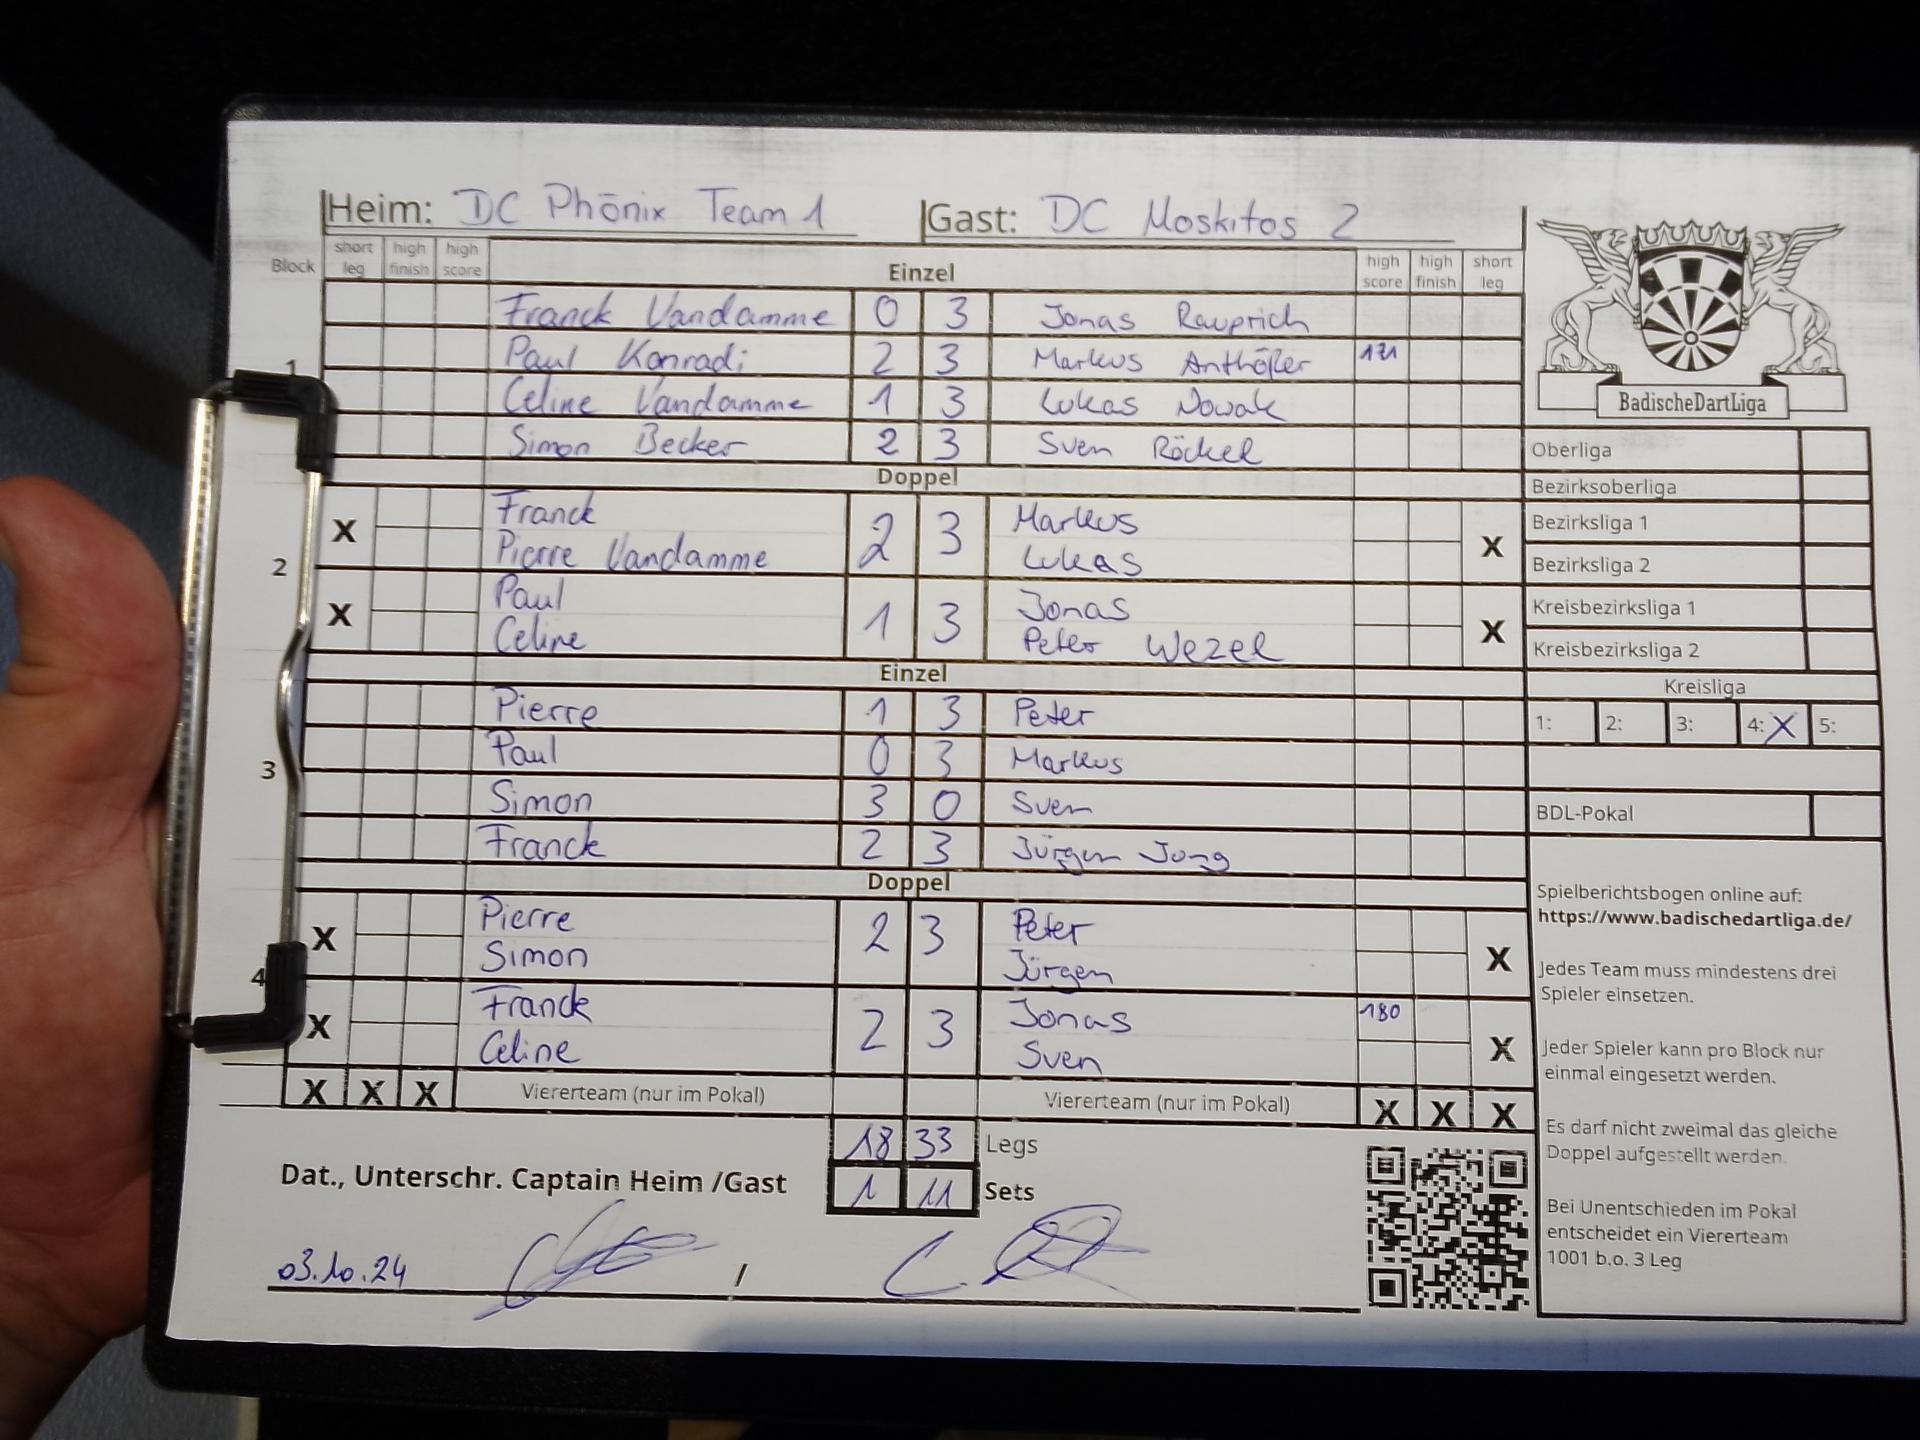 Heim: DC Phönix Team 1 Gast: DC Moskitos 2
Block short leg high finish high score Einzel high score high finish short leg
Franck Vandamme 0 3 Jonas Rauprich
1 Paul Konradi 2 3 Markus 171
Celine Vandamme 1 3 Lukas Nowak
Simon Becker 2 3 Sven Röckel
Doppel
2
X Franck 2 3 Markus X
Pierre Vandamme Lukas
X Paul 1 3 Jonas X
Celine Peter Wezel
Einzel
Pierre 1 3 Peter
3 Paul 0 3 Markus
Simon 3 0 Sven
Franck 2 3 Jürgen Jung
Doppel
4
X Pierre 2 3 Peter X
Simon Jürgen
X Franck 2 3 Jonas 180 X
Celine Sven
X X X Viererteam (nur im Pokal) Viererteam (nur im Pokal) X X X
18 33 Legs
Dat., Unterschr. Captain Heim /Gast 1 11 Sets
03.10.24 /
BadischeDartLiga
Oberliga
Bezirksoberliga
Bezirksliga 1
Bezirksliga 2
Kreisbezirksliga 1
Kreisbezirksliga 2
Kreisliga
1: 2: 3: 4: X 5:
BDL-Pokal
Spielberichtsbogen online auf:
https://www.badischedartliga.de/
Jedes Team muss mindestens drei
Spieler einsetzen.
Jeder Spieler kann pro Block nur
einmal eingesetzt werden.
Es darf nicht zweimal das gleiche
Doppel aufgestellt werden.
Bei Unentschieden im Pokal
entscheidet ein Viererteam
1001 b.o. 3 Leg